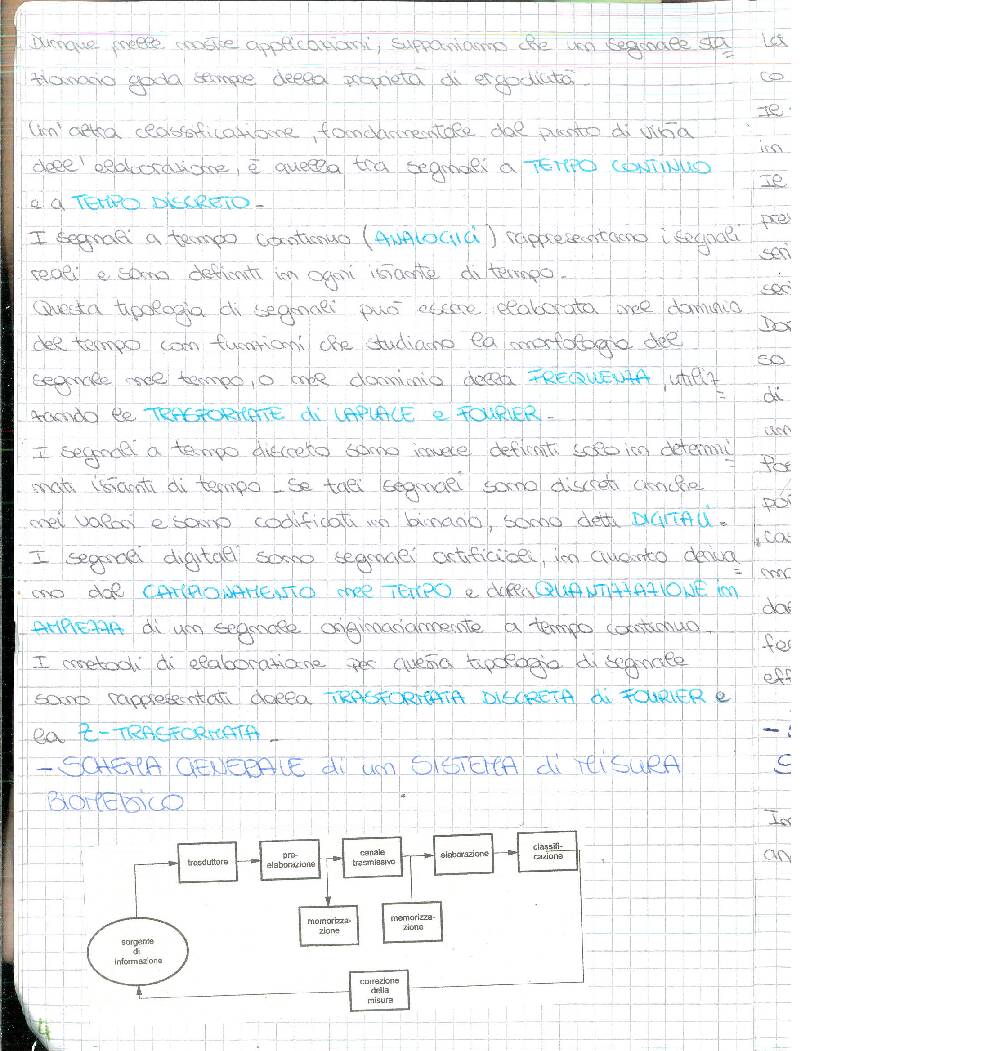 Dunque nelle nostre applicazioni, supponiamo che un segnale sta
zionario goda sempre della proprietà di ergodicità.
Un'altra classificazione, fondamentale dal punto di vista
dell'elaborazione, è quella tra segnali a TEMPO CONTINUO
e a TEMPO DISCRETO.
I segnali a tempo continuo (ANALOGICI) rappresentano i segnali
reali e sono definiti in ogni istante di tempo.
Questa tipologia di segnali può essere elaborata nel dominio
del tempo con funzioni che studiano la morfologia del
segnale nel tempo, o nel dominio della FREQUENZA, utiliz
zando le TRASFORMATE di LAPLACE e FOURIER.
I segnali a tempo discreto sono invece definiti solo in determi
nati istanti di tempo. Se tali segnali sono discreti anche
nei valori e sono codificati in binario, sono detti DIGITALI.
I segnali digitali sono segnali artificiali, in quanto deriva
no dal CAMPIONAMENTO nel TEMPO e dalla QUANTIZZAZIONE in
AMPIEZZA di un segnale originariamente a tempo continuo.
I metodi di elaborazione per questa tipologia di segnale
sono rappresentati dalla TRASFORMATA DISCRETA di FOURIER e
la Z-TRASFORMATA.
- SCHEMA GENERALE di un SISTEMA di MISURA
BIOMEDICO
trasduttore
pre-
elaborazione
canale
trasmissivo
elaborazione
classifi-
cazione
memorizza-
zione
memorizza-
zione
sorgente
di
informazione
correzione
della
misura
4